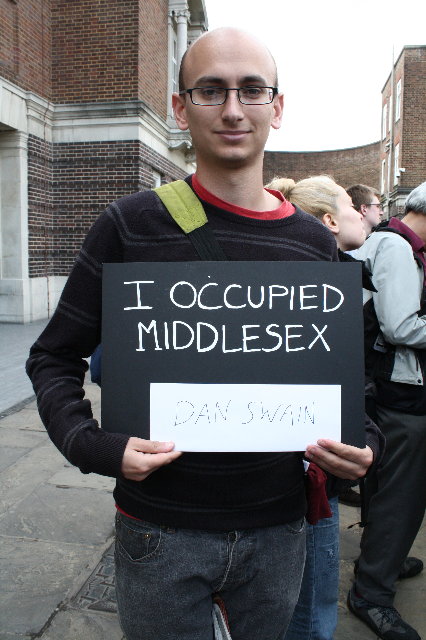 I OCCUPIED
MIDDLESEX
DAN SWAIN